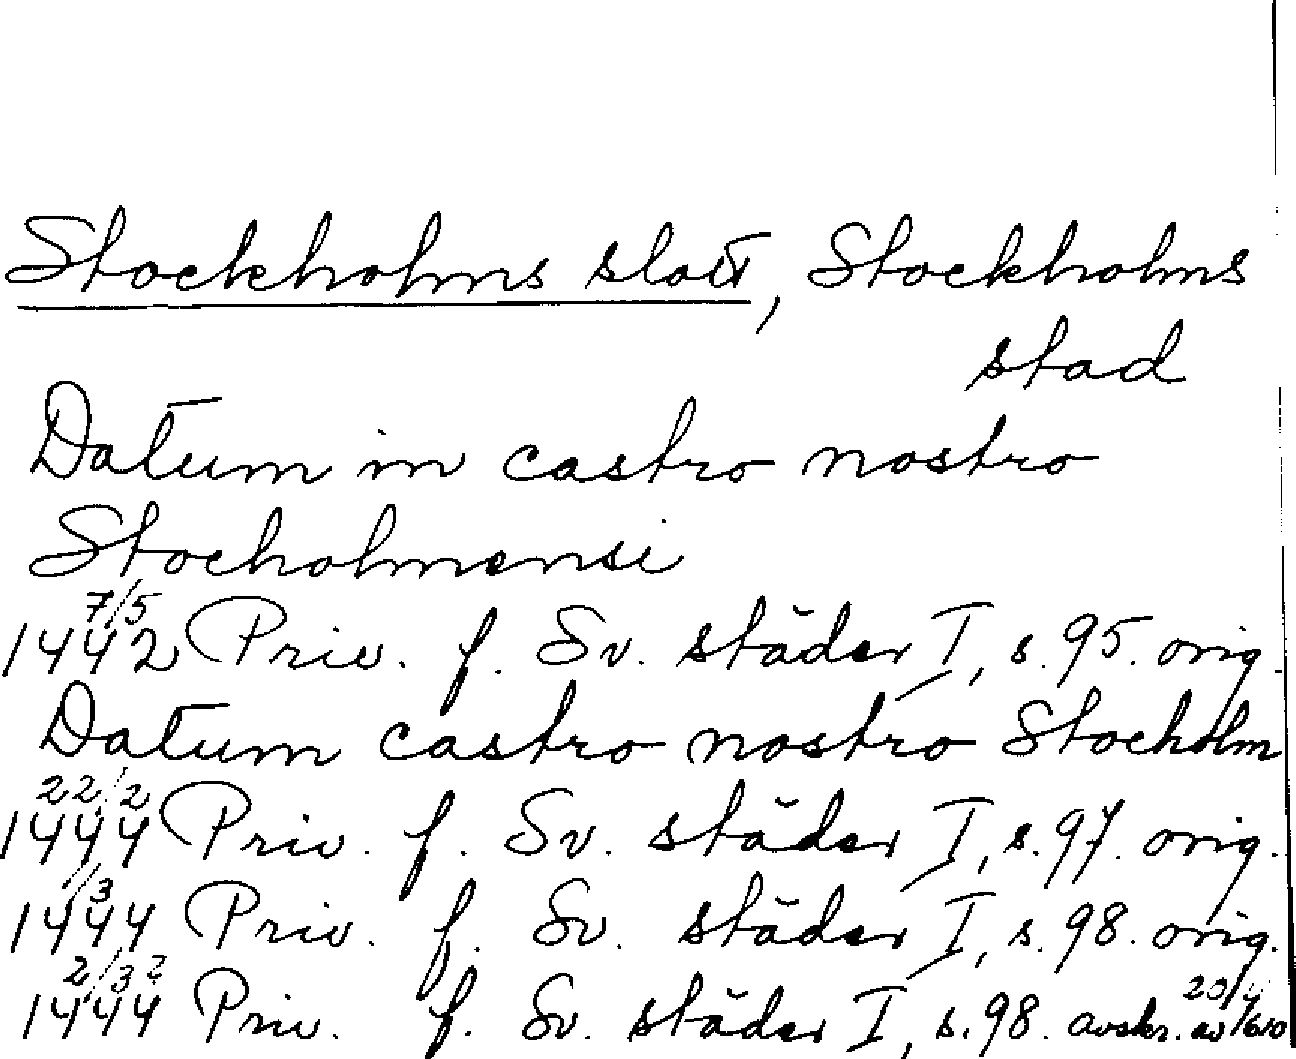 Stockholms slott, Stockholms
stad
Datum in castro nostro
Stocholmensi
7/5
1442 Priv. f. Sv. städer I, s. 95. orig.
Datum castro nostro Stocholm
22/2
1444 Priv. f. Sv. städer I, s. 97. orig.
/3
1444 Priv. f. Sv. städer I, s. 98. orig.
2/3 ?
1444 Priv. f. Sv. städer I, s. 98. avskr. av 20/4 1610